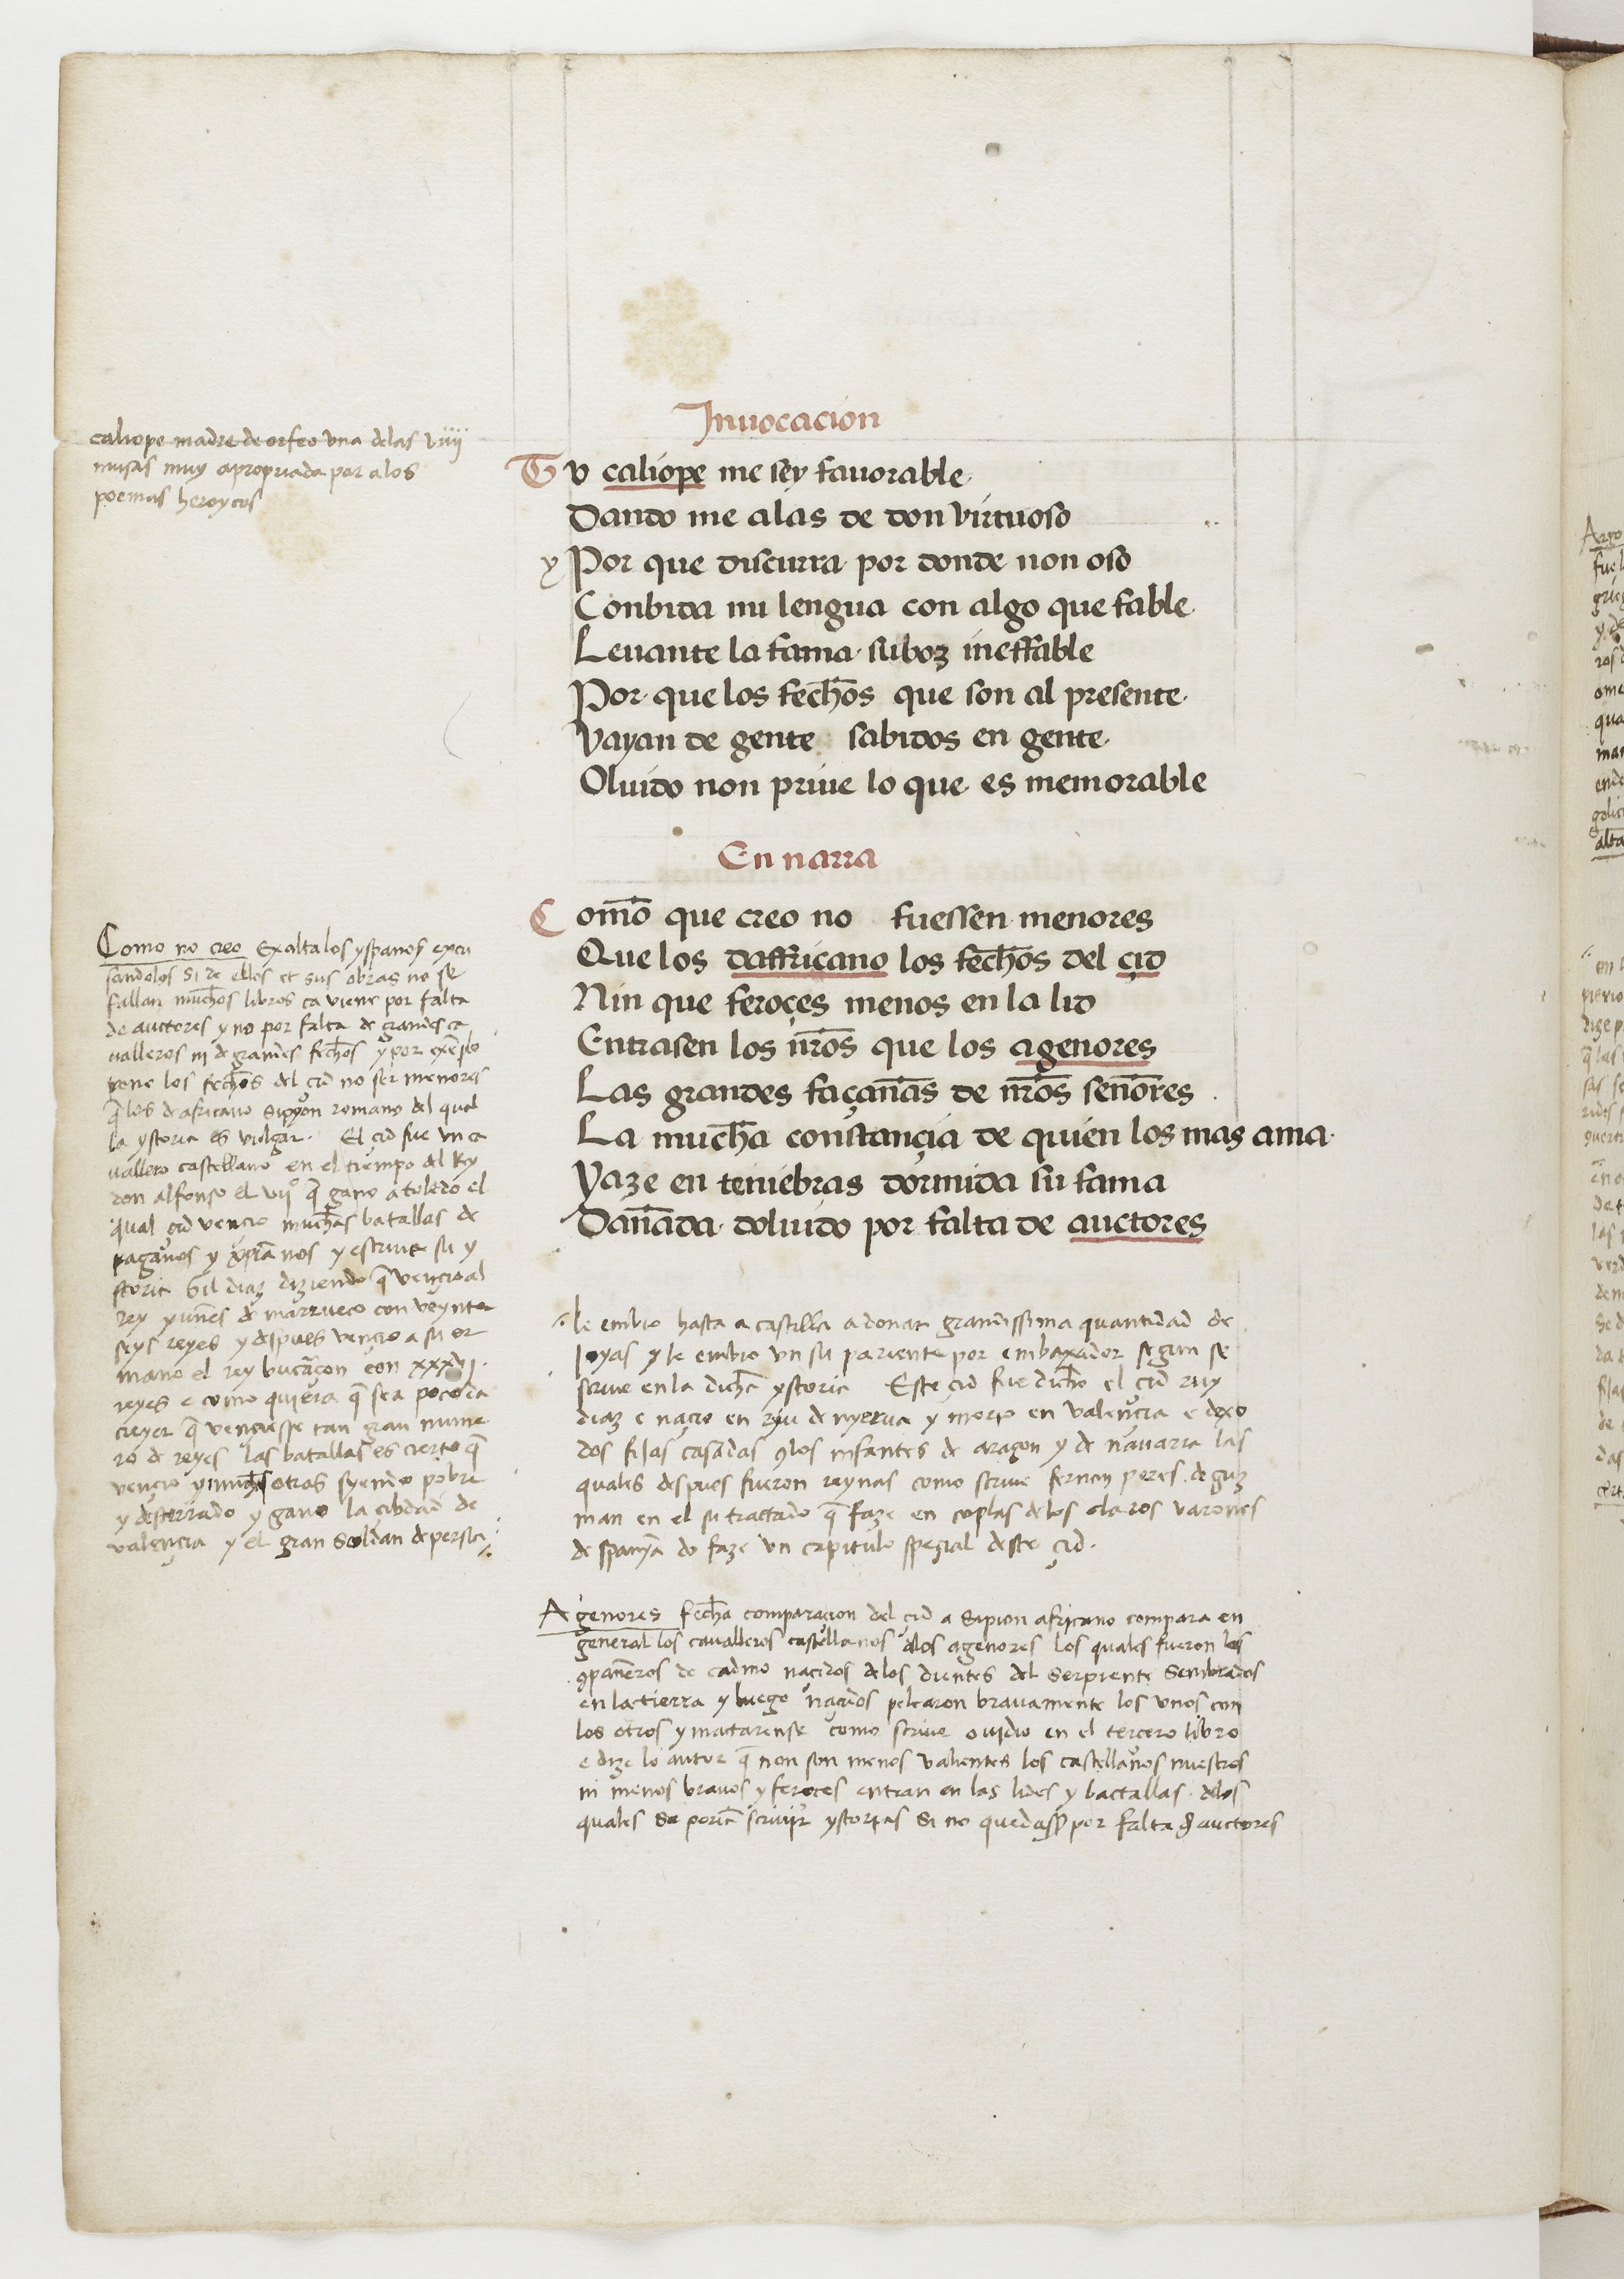 Inuocacion
Tu caliope me sey fauorable
Dando me alas de don virtuoso
y Por que discurra por donde non oso
Conbida mi lengua con algo que fable
Leuante la fama su boz ineffable
Por que los fechos que son al presente
Vayan de gente sabidos en gente
Oluido non priue lo que es memorable
En narra
Como que creo no fuessen menores
Que los daffricano los fechos del çid
Nin que feroçes menos en la lid
Entrasen los nr̃os que los agenores
Las grandes façanas de nr̃os senores
La mucha constançia de quien los mas ama
Yaze en teniebras dormida su fama
Danada doluido por falta de auctores
caliope madre de orfeo una delas viiij
musas muy apropriada por alos
poemas heroycos
Como no creo Exalta los yspanos excu
sandolos si de ellos et sus obras no se
fallan muchos libros ca viene por falta
de auctores y no por falta de grandes ca
ualleros ni de grandes fechos y por exẽplo
pone los fechos del çid no ser menores
q̃ los de africano sipyon romano del qual
la ystoria es vulgar. El çid fue vn ca
uallero castellano en el tiempo del Rey
don alfonso el vijº q̃ gano a toledo el
qual çid vençio muchas batallas de
paganos y xp̃ianos y escriue su y
storia Gil diaz diziendo q̃ vençio al
rey yunes de marrueco con veynte
seys reyes y despues vençio a su er
mano el rey bucar con xxxvj.
reyes e como quiera q̃ sea poco da
creyer q̃ vençiesse tan gran nume
ro de reyes las batallas es cierto q̃
vençio y muchas otras syendo pobre
y desterrado y gano la çibdad de
valençia y el gran Soldan de persia
le embio hasta a castilla a donar grandissima quantidad de
joyas y le embio vn su pariente por embaxador segun se
scriue en la dicha ystoria Este çid fue dicho el çid ruy
diaz e naçio en riu de nyerua y morio en valençia e dexo
dos fijas casadas 9los infantes de aragon y de nauarra las
quales despues fueron reynas como scriue fernan peres de guz
man en el su tractado q̃ faze en coplas de los claros varones
de spanya do faze vn capitulo speçial deste çid.
Agenores fecha comparacion del çid a Sipion africano compara en
general los caualleros castellanos alos agenores los quales fueron los
9paneros de cadmo naçidos delos dientes del Serpiente Sembrados
en la tierra y luego naçidos pelearon brauamente los vnos con
los otros y matarense como scriue ouidio en el tercero libro
e dize lo autor q̃ non son menos valientes los castellanos nuestros
ni menos brauos y feroces entran en las lides y bactallas delos
quales se poria scriuir ystorias Si no quedass por falta d auctores